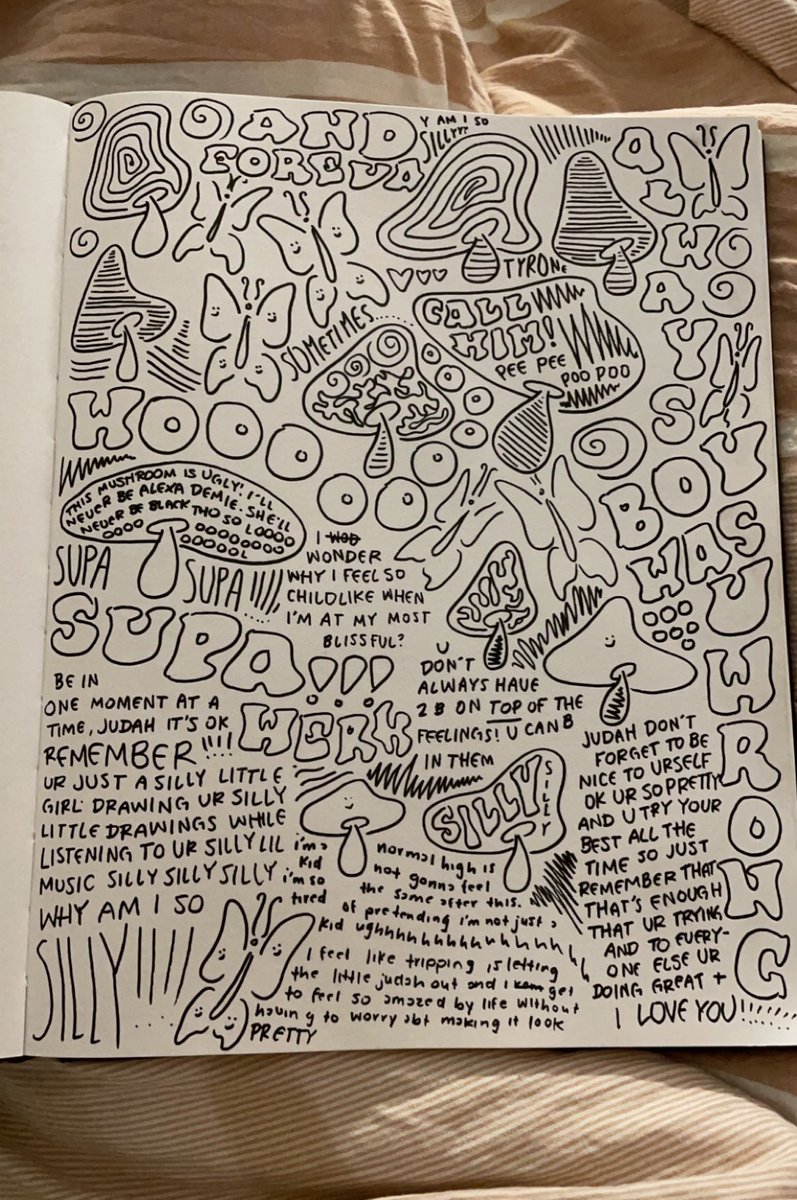 AND
FOREVA
Y AM I SO
SILLY???
TYRONE
CALL
HIM!
PEE PEE
POO POO
SOMETIMES.....
ALWAYS
BOY WAS
U WRONG
WOOOOOOO
THIS MUSHROOM IS UGLY! I'LL
NEVER BE ALEXA DEMIE. SHE'LL
NEVER BE BLACK THO SO LOOOO
OOOO OOOOOOOO
OOOOOL
SUPA
SUPA !!!!!
SUPA!!!
WERK
I WOD
WONDER
WHY I FEEL SO
CHILDLIKE WHEN
I'M AT MY MOST
BLISSFUL?
U
DON'T
ALWAYS HAVE
2 B ON TOP OF THE
FEELINGS! U CAN B
IN THEM
BE IN
ONE MOMENT AT A
TIME, JUDAH IT'S OK
REMEMBER !!!!
UR JUST A SILLY LITTLE
GIRL DRAWING UR SILLY
LITTLE DRAWINGS WHILE
LISTENING TO UR SILLY LIL
MUSIC SILLY SILLY SILLY
WHY AM I SO
SILLY!!!!....
SILLY
SILLY
i'm a
kid
i'm so
tired
normal high is
not gonna feel
the same after this.
of pretending i'm not just a
kid ughhhhhhhhhhhhhh
I feel like tripping is letting
the little judah out and i get
to feel so amazed by life without
having to worry abt making it look
PRETTY
JUDAH DON'T
FORGET TO BE
NICE TO URSELF
OK UR SO PRETTY
AND U TRY YOUR
BEST ALL THE
TIME SO JUST
REMEMBER THAT
THAT'S ENOUGH
THAT UR TRYING
AND TO EVERY-
ONE ELSE UR
DOING GREAT +
I LOVE YOU!!